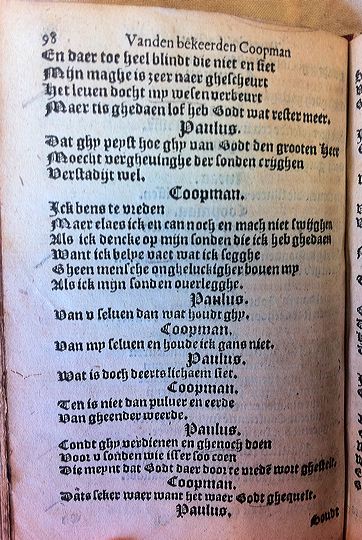 98 Vanden bekeerden Coopman
En daer toe heel blindt die niet en siet
Mijn maghe is zeer naer ghescheurt
Het leven docht my wesen verbeurt
Maer tis ghedaen lof heb Godt wat rester meer,
Paulus.
Dat ghy peyst hoe ghy van Godt den grooten Heer
Moecht vergheuinghe der sonden crijghen
Verstadijt wel.
Coopman.
Ick bens te vreden
Maer elaes ick en can noch en mach niet swijghen
Als ick dencke op mijn sonden die ick heb ghedaen
Want ick helpe vaet wat ick segghe
Gheen mensche ongheluckigher bouen my
Als ick mijn sonden ouerlegghe.
Paulus.
Van v seluen dan wat houdt ghy.
Coopman.
Van my seluen en houde ick gans niet.
Paulus.
Wat is doch deerts lichaem siet.
Coopman.
Ten is niet dan puluer en eerde
Van gheender weerde.
Paulus.
Condt ghy verdienen en ghenoch doen
Voor v sonden wie isser soo coen
Die meynt dat Godt daer door te vredē wort ghestelt.
Coopman.
Dats seker waer want het waer Godt ghequelt.
Paulus.
Houdt